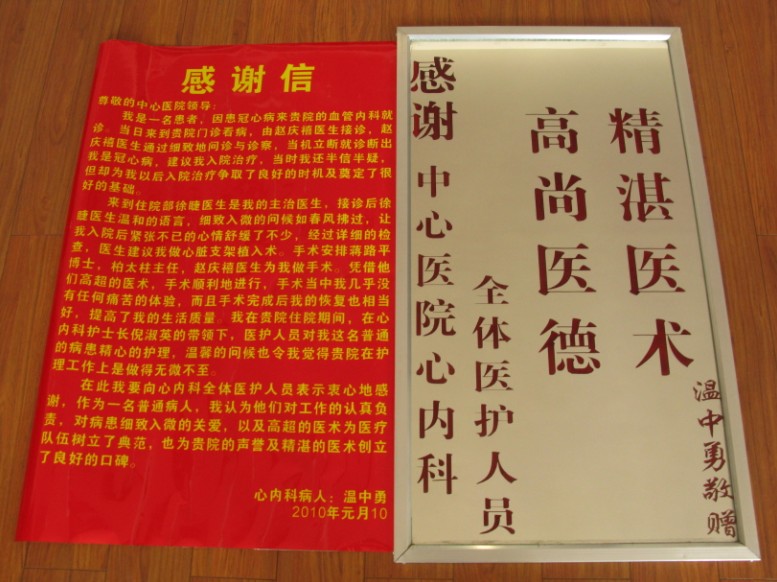 感谢信
尊敬的中心医院领导：
我是一名患者，因患冠心病来贵院的血管内科就
诊。当日来到贵院门诊看病，由赵庆禧医生接诊，赵
庆禧医生通过细致地问诊与诊察，当机立断就诊断出
我是冠心病，建议我入院治疗，当时我还半信半疑，
但却为我以后入院治疗争取了良好的时机及奠定了很
好的基础。
来到住院部徐睫医生是我的主治医生，接诊后徐
睫医生温和的语言，细致入微的问候如春风拂过，让
我入院后紧张不已的心情舒缓了不少，经过详细的检
查，医生建议我做心脏支架植入术。手术安排蒋路平
博士，柏太柱主任，赵庆禧医生为我做手术。凭借他
们高超的医术，手术顺利地进行，手术当中我几乎没
有任何痛苦的体验，而且手术完成后我的恢复也相当
好，提高了我的生活质量。我在贵院住院期间，在心
内科护士长倪淑英的带领下，医护人员对我这名普通
的病患精心的护理，温馨的问候也令我觉得贵院在护
理工作上是做得无微不至。
在此我要向心内科全体医护人员表示衷心地感
谢，作为一名普通病人，我认为他们对工作的认真负
责，对病患细致入微的关爱，以及高超的医术为医疗
队伍树立了典范，也为贵院的声誉及精湛的医术创立
了良好的口碑。
心内科病人：温中勇
2010年元月10
感谢 中心医院心内科
全体医护人员
精湛医术
高尚医德
温中勇敬赠